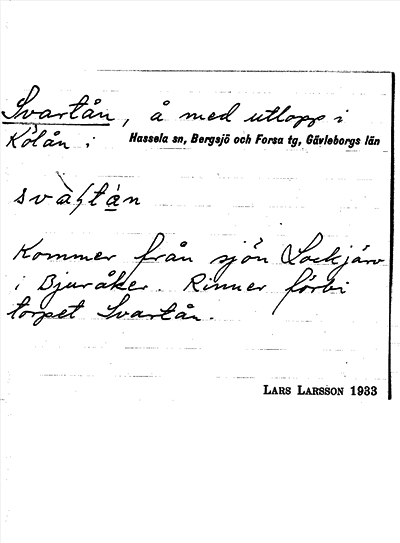 Svartån, å med utlopp i
Kölån i Hassela sn, Bergsjö och Forsa tg, Gävleborgs län
svàʃtá̱n
Kommer från sjön Lockjärv
i Bjuråker. Rinner förbi
torpet Svartån.
LARS LARSSON 1933